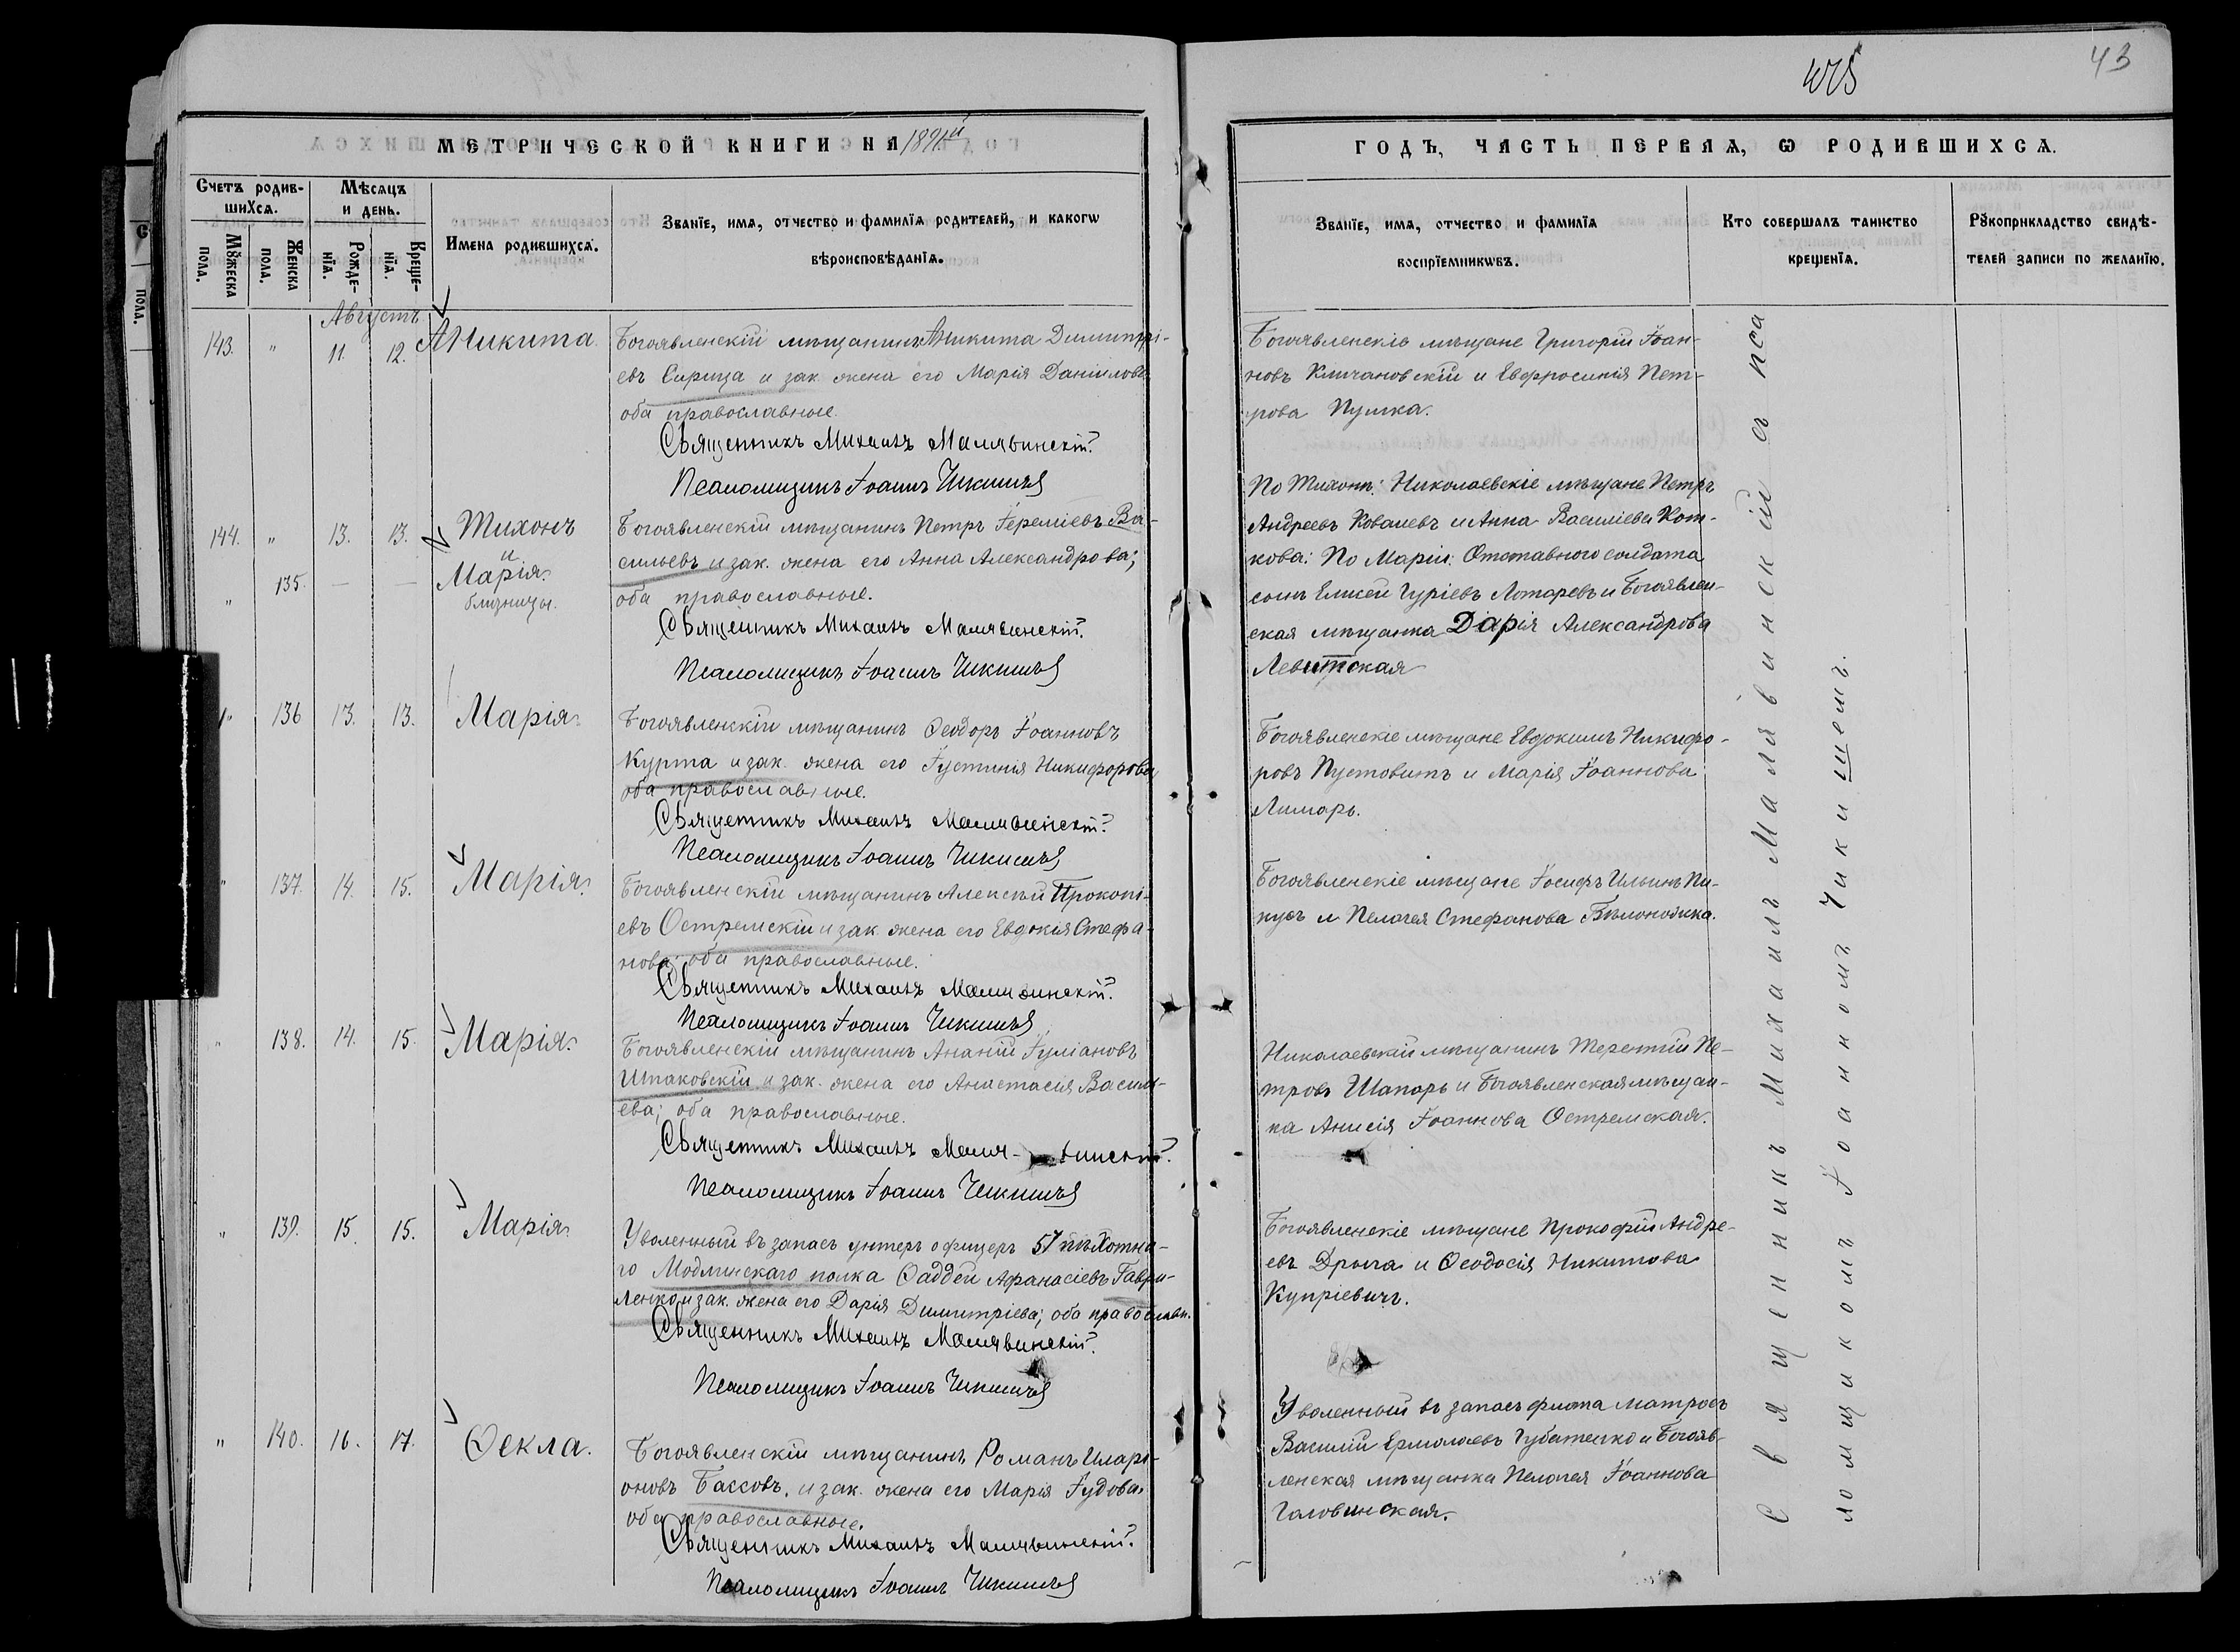 43
МЕТРИЧЕСКОЙ КНИГИ НА 1891й
ГОДЪ, ЧАСТЬ ПЕРВАЯ, Ѡ РОДИВШИХСѦ.
Счетъ родив-
шихсѧ.
Мꙋжеска
пола.
Женска
пола.
Мѣсѧцъ
и день.
Рожде-
нїѧ.
Креще-
нїѧ.
Имена родившихсѧ.
Званїе, имѧ, отчество и фамилїѧ родителей, и какогѡ
вѣроисповѣданїѧ.
Званїе, имѧ, отчество и фамилїѧ
воспрїемникѡвъ.
Кто совершалъ таинство
крещенїѧ.
Рꙋкоприкладство свидѣ-
телей записи по желанїю.
Августъ
143. " 11. 12. Аникита.
Богоявленскій мѣщанинъ Аникита Димитрі-
евъ Сирица и зак. жена его Марія Даніилова
оба православные.
Священникъ Михаилъ Малявинскій.
Псаломщикъ Іоаннъ Чикишъ
Богоявленскіе мѣщане Григорій Іоан-
новъ Кличановскій и Евфросинія Пет-
рова Пушка.
144. " 13. 13. Тихонъ
и
" 135. — — Марія.
близнецы.
Богоявленскій мѣщанинъ Петръ Іереміевъ Ва-
сильевъ и зак. жена его Анна Александрова;
оба православные.
Священникъ Михаилъ Малявинскій.
Псаломщикъ Іоаннъ Чикишъ
По Тихонѣ: Николаевскіе мѣщане Петръ
Андреевъ Ковалевъ и Анна Василіева Кот-
кова: По Маріи: Отставного солдата
сынъ Елисей Гуріевъ Лотаревъ и Богоявлен-
ская мѣщанка Дарія Александрова
Левитская
" 136 13. 13. Марія.
Богоявленскій мѣщанинъ Ѳеодоръ Іоанновъ
Курта и зак. жена его Іустинія Никифорова
оба православные.
Священникъ Михаилъ Малявинскій.
Псаломщикъ Іоаннъ Чикишъ
Богоявленскіе мѣщане Евдокимъ Никифо-
ровъ Пустовитъ и Марія Іоаннова
Лимарь.
" 137. 14. 15. Марія.
Богоявленскій мѣщанинъ Алексѣй Прокопі-
евъ Остремскій и зак. жена его Евдокія Стефа-
нова; оба православные.
Священникъ Михаилъ Малявинскій.
Псаломщикъ Іоаннъ Чикишъ
Богоявленскіе мѣщане Іосифъ Ильинъ Пи-
кусъ и Пелагея Стефанова Бѣлоножка.
" 138. 14. 15. Марія.
Богоявленскій мѣщанинъ Ананій Іуліановъ
Шпаковскій и зак. жена его Анастасія Васили-
ева; оба православные.
Священникъ Михаилъ Маля- винскій.
Псаломщикъ Іоаннъ Чикишъ
Николаевскій мѣщанинъ Терентій Пе-
тровъ Шапарь и Богоявленская мѣщан-
ка Анисія Іоаннова Остремская.
" 139. 15. 15. Марія.
Уволенный въ запасъ унтеръ офицеръ 57 пѣхотна-
го Модлинскаго полка Ѳаддей Афанасіевъ Гаври-
ленко и зак. жена его Дарія Димитріева; оба православн.
Священникъ Михаилъ Малявинскій.
Псаломщикъ Іоаннъ Чикишъ
Богоявленскіе мѣщане Прокофій Андре-
евъ Дрыга и Ѳеодосія Никитова
Купріевичъ.
" 140. 16. 17. Ѳекла.
Богоявленскій мѣщанинъ Романъ Илари-
оновъ Бассовъ, и зак. жена его Марія Іудова.
оба православные.
Священникъ Михаилъ Малявинскій.
Псаломщикъ Іоаннъ Чикишъ
Уволенный въ запасъ флота матросъ
Василій Ермолаевъ Губатенко и Богояв-
ленская мѣщанка Пелагея Іоаннова
Головинская.
Священникъ Михаилъ Малявинскій съ пса
ломщикомъ Іоанномъ Чикишемъ.